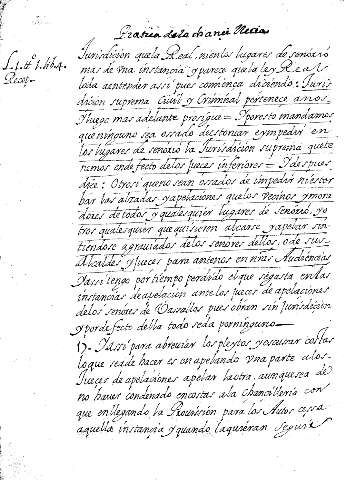 Practica dela chanci lleria
L. 1. tt.º 1. lib. 4.
Recop.
Jurisdicion que la Real, ni en los lugares de senorio
mas de vna instancia y parece que la ley Real
lo da a entender assi pues comiença diciendo: Juris
dicion suprema Ciuil y Criminal pertenece a nos
Y luego mas adelante prosigue = Y por esto mandamos
que ninguno sea osado de estoruar e ympedir en
los lugares de senorio la Jurisdicion suprema que te
nemos en defecto de los jueces inferiores = Y despues
dice: Otrosi que no sean ossados de impedir ni estor
bar las alzadas y apelaciones que los vecinos y mora
dores de todos y qualesquier lugares de Senorio, y o
tros qualesquier que quisieren alçarse y apelar sin
tiendose agrauiados de los senores dellos, o de sus
Alcaldes y jueces para ante nos en nras Audiencias
Y assi tengo por tiempo perdido el que se gasta en las
instancias de apelacion ante los jueces de apelaciones
de los senores de Vasallos pues obran sin jurisdicion
y por defecto della todo se da por ninguno —
17. Y assi para abreuiar los pleytos y escusar costas
lo que se a de hacer es en apelando vna parte a los
Jueces de apelaciones apelar la otra, aunque sea de
no hauer condenado en costas a la Chancilleria con
que en llegando la Prouission para los Autos cessa
aquella instancia y quando la quieran seguir